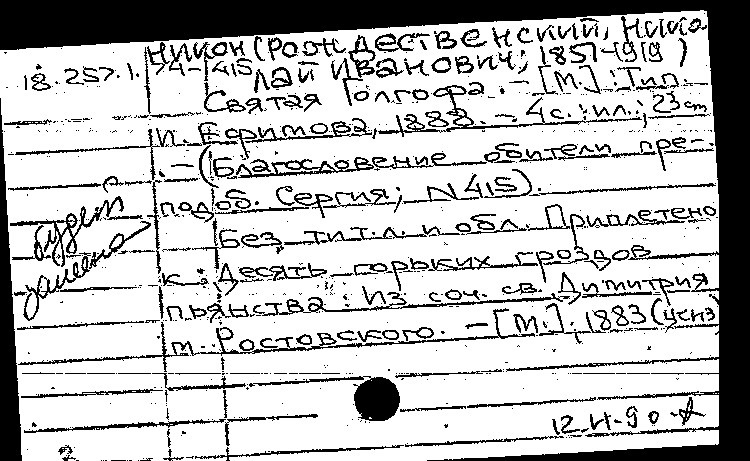 Никон (Рождественский, Нико-
18.257.1. 74-415 лай Иванович; 1857-1919)
Святая Голгофа. - [М.] : Тип.
И. Ефимова, 1888. - 4 с. : ил.; 23 cm
. - (Благословение обители пре-
подоб. Сергия; N 415).
Без тит. л. и обл. Приплетено
к : Десять горьких гроздов
пьянства : Из соч. св. Димитрия
м. Ростовского. - [М.], 1883 (ценз)
будет
12.